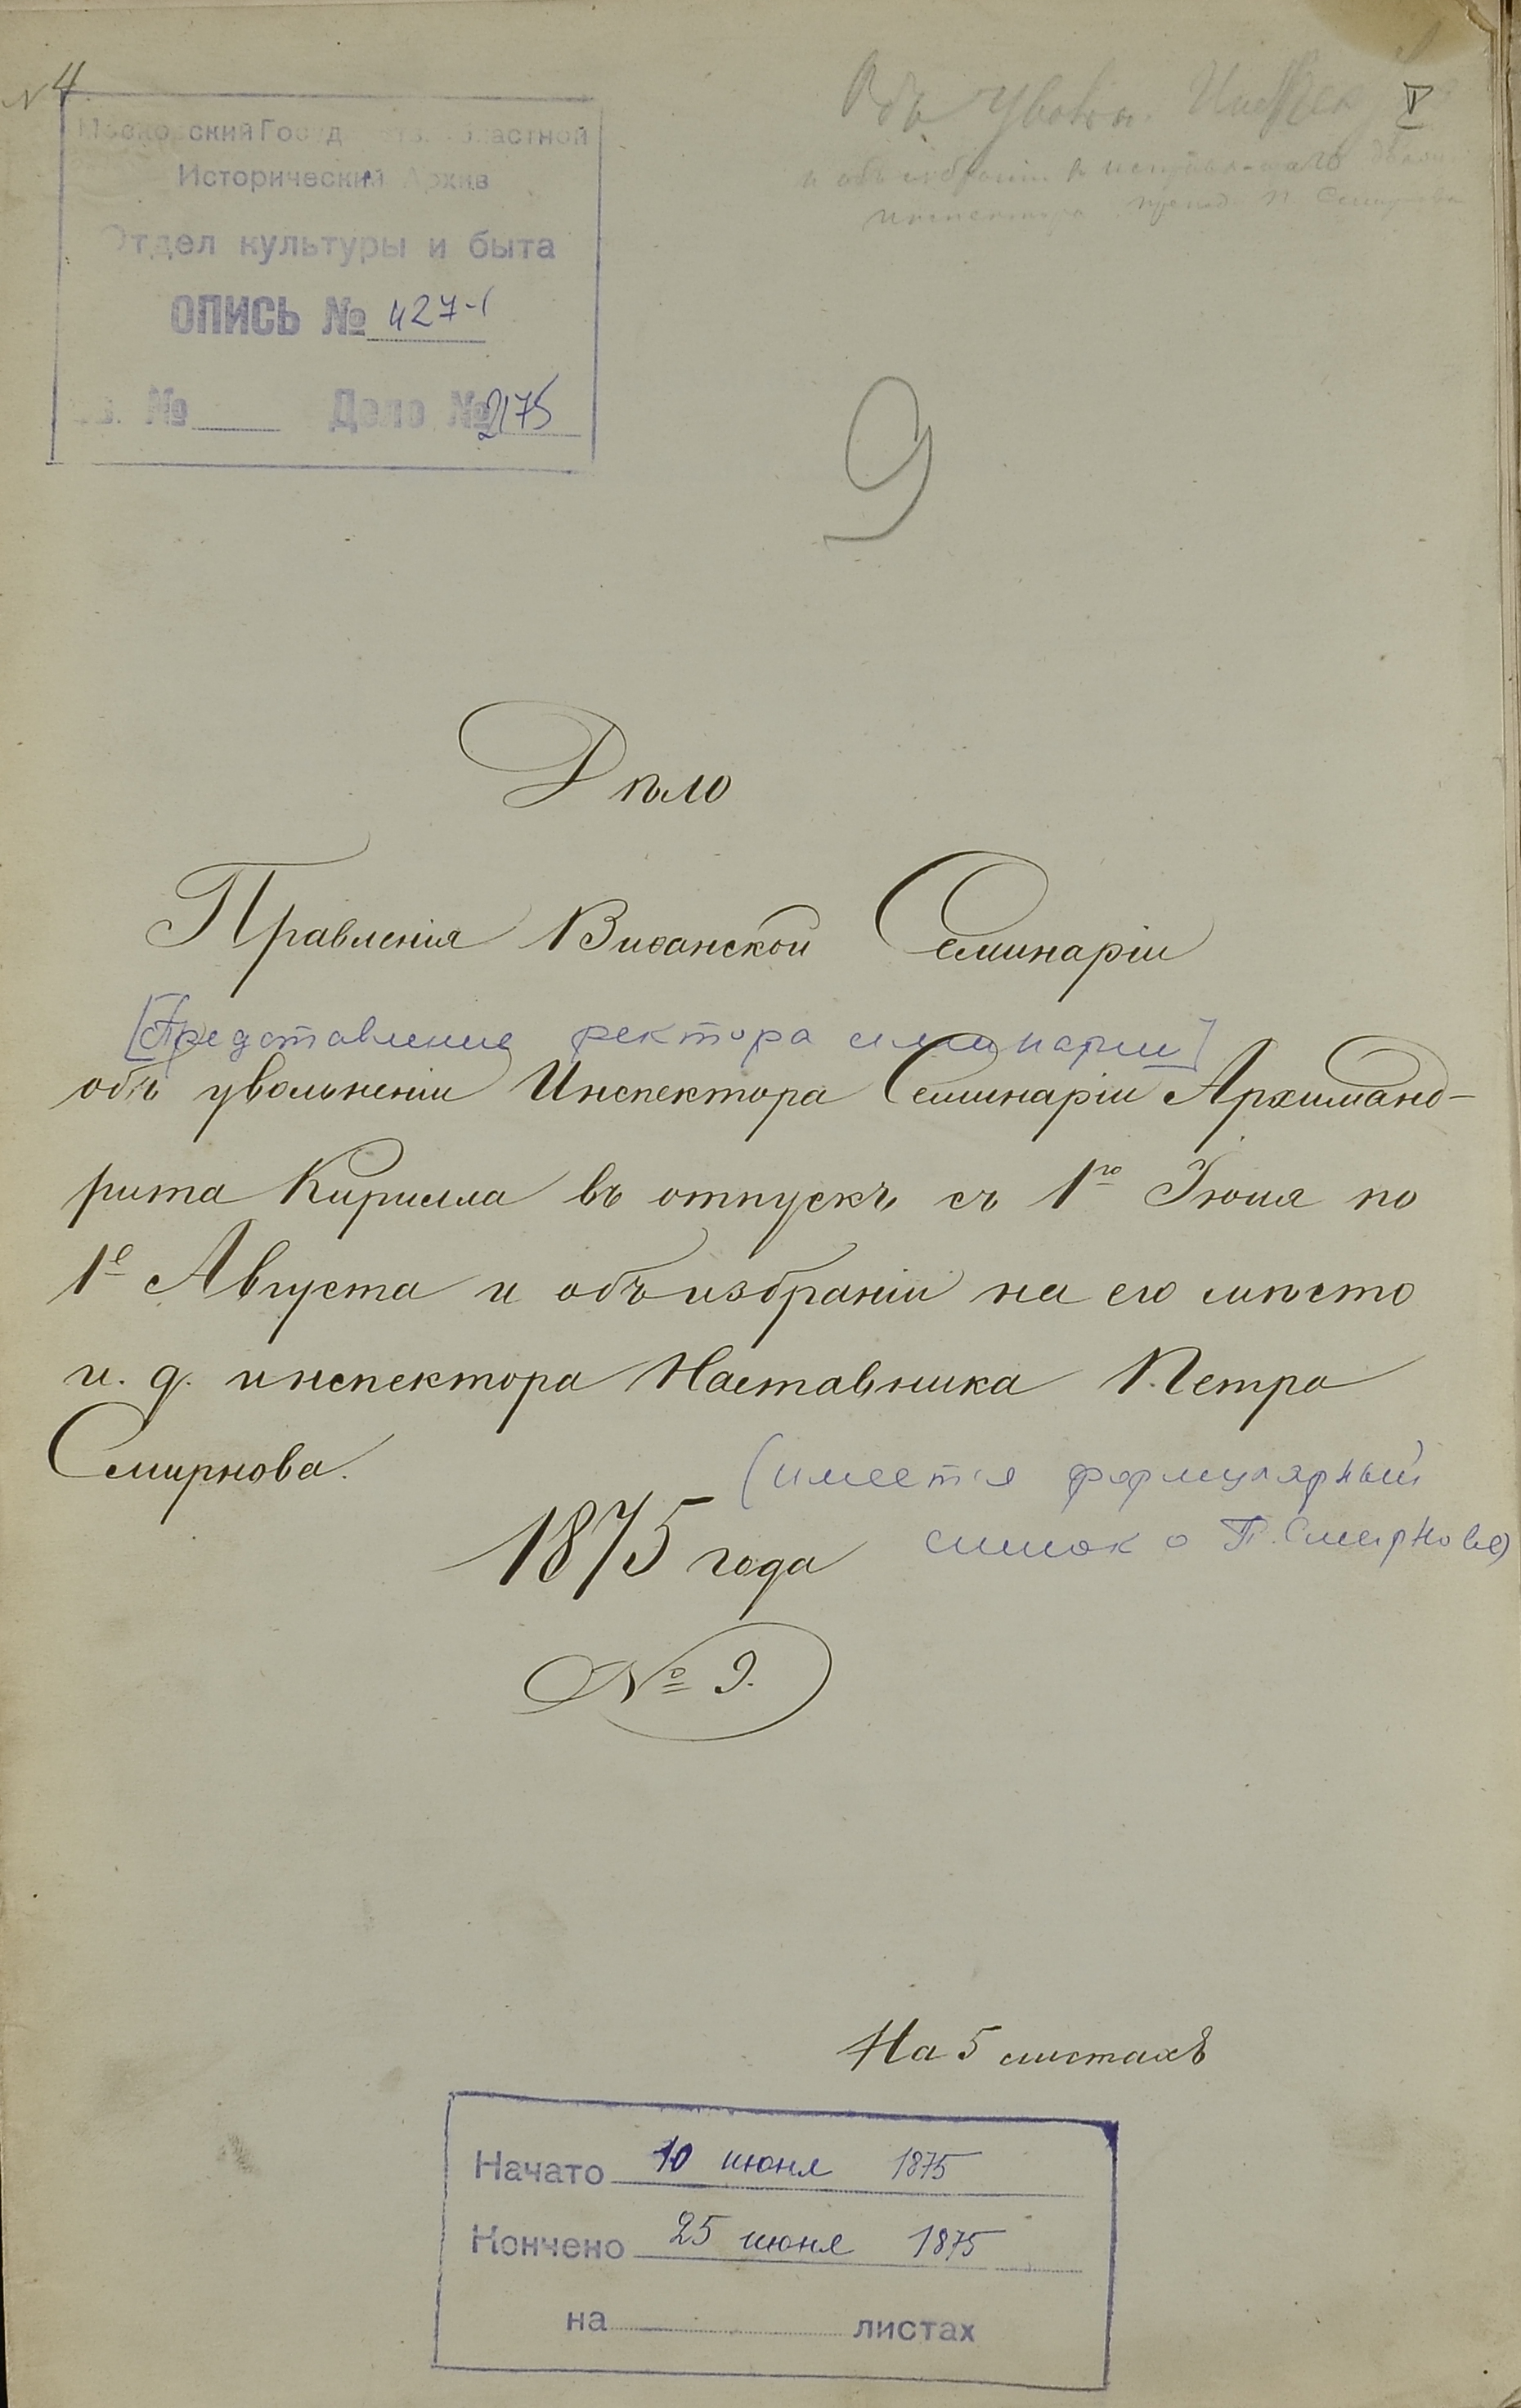 № 4
Московский Государств. Областной
Исторический Архив
Отдел культуры и быта
ОПИСЬ № 427-1
Дело № 2175
Объ увольн.
V
9
Дѣло
Правленія Виѳанской Семинаріи
[Представление ректора семинарии]
объ увольненіи Инспектора Семинаріи Архиманд-
рита Кирилла въ отпускъ съ 1го Іюня по
1е Августа и объ избраніи на его мѣсто
и. д. инспектора Наставника Петра
Смирнова.
(имеется формулярный
список о П. Смирнове)
1875 года
№ 9.
На 5 листахъ
Начато 10 июня 1875
Кончено 25 июня 1875
на листах